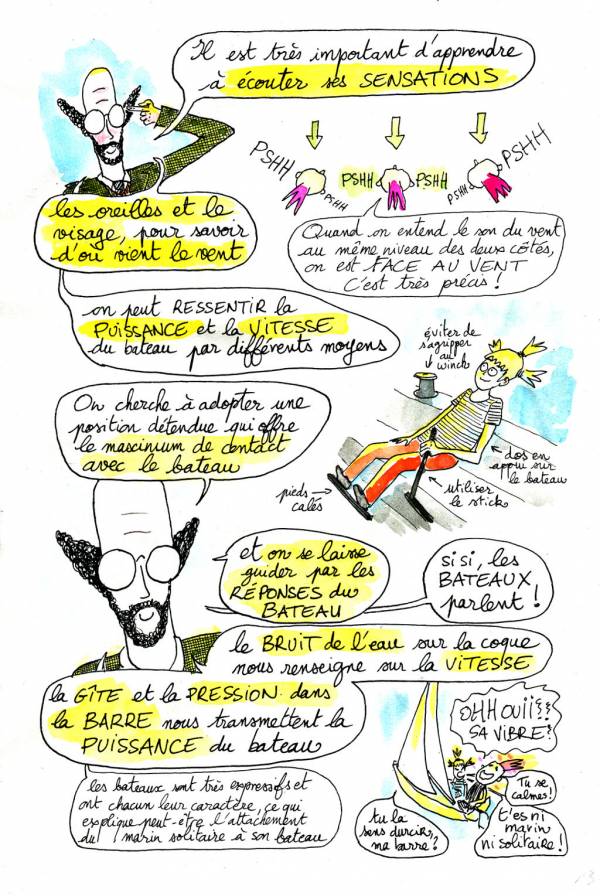 Il est très important d'apprendre
à écouter ses SENSATIONS
PSHH
PSHH
PSHH
PSHH
PSHH
PSHH
les oreilles et le
visage, pour savoir
d'où vient le vent
Quand on entend le son du vent
au même niveau des deux côtés,
on est FACE AU VENT
C'est très précis !
on peut RESSENTIR la
PUISSANCE et la VITESSE
du bateau par différents moyens
éviter de
s'agripper
au
winch
On cherche à adopter une
position détendue qui offre
le maximum de contact
avec le bateau
dos en
appui sur
le bateau
utiliser
le stick
pieds
calés
et on se laisse
guider par les
RÉPONSES du
BATEAU
si si, les
BATEAUX
parlent !
le BRUIT de l'eau sur la coque
nous renseigne sur la VITESSE
la GÎTE et la PRESSION dans
la BARRE nous transmettent la
PUISSANCE du bateau
OHH OUIII ??
SA VIBRE ?
Tu se
calmes !
t'es ni
marin
ni solitaire !
tu la
sens durcir,
ma barre ?
les bateaux sont très expressifs et
ont chacun leur caractère, ce qui
explique peut-être l'attachement
du marin solitaire à son bateau